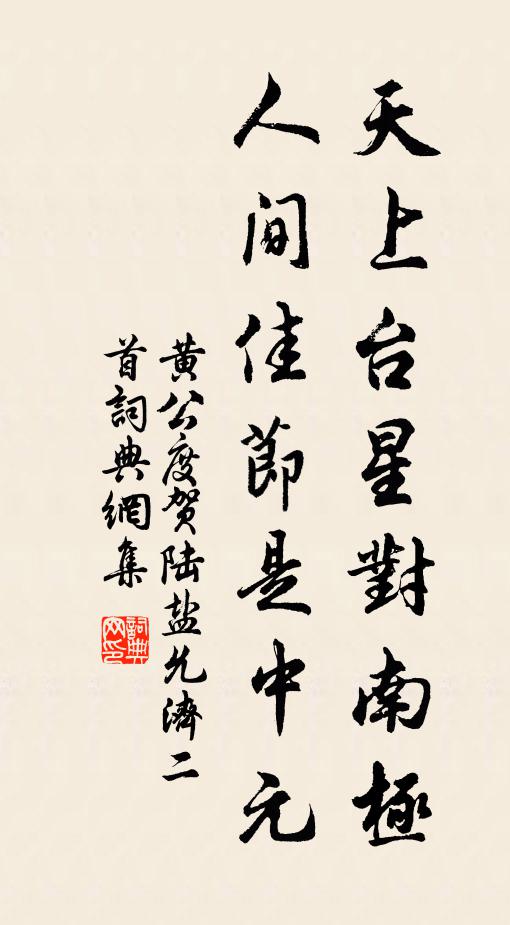 天上台星對南極
人间佳節是中元
黄公度贺陆盐允濟二
首詞典網集
詞典網印